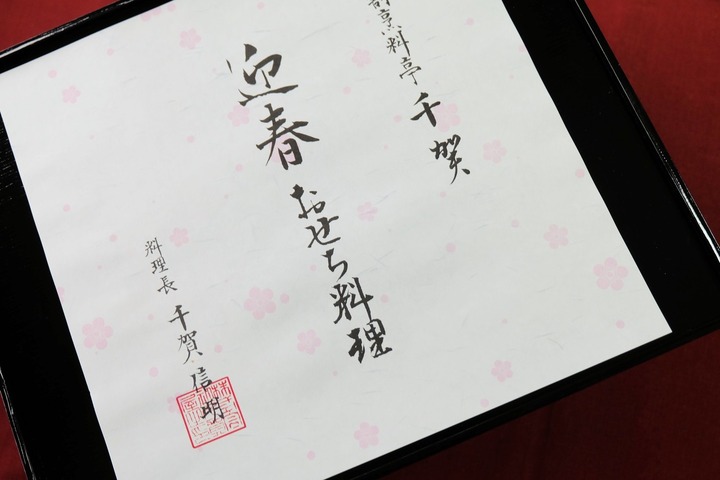 割烹料亭 千賀
迎春 おせち料理
料理長 千賀 信明